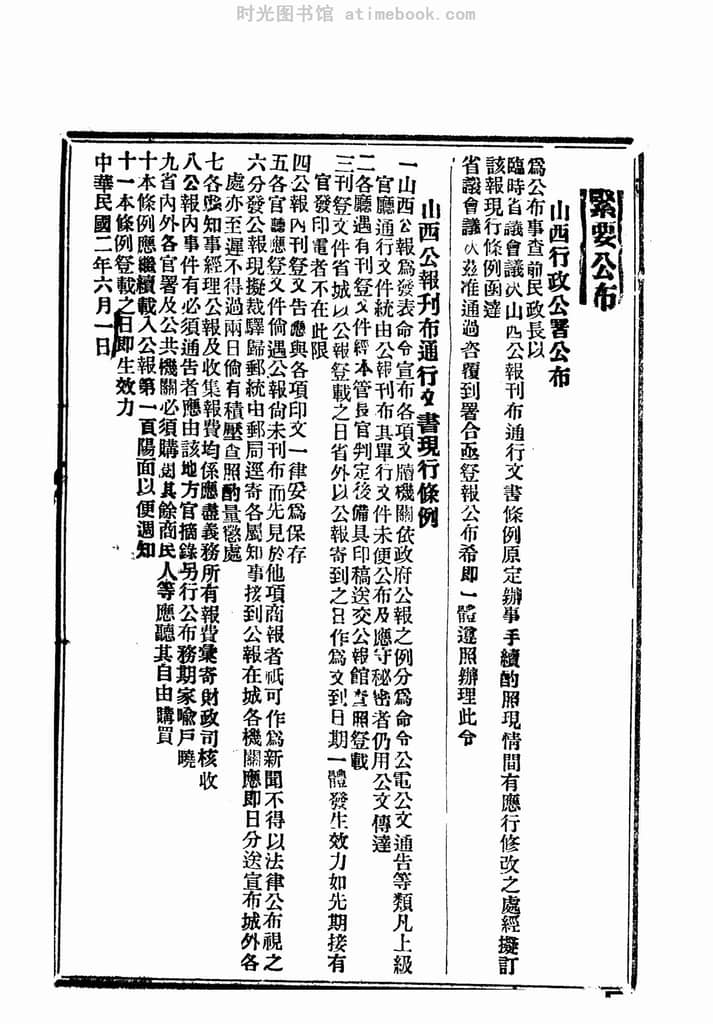 时光图书馆 atimebook.com
緊要公布
山西行政公署公布
爲公布事查前民政長以
臨時省議會議决山西公報刊布通行文書條例原定辦事手續酌照現情間有應行修改之處經擬訂
該報現行條例函達
省議會議决茲准通過咨覆到署合亟登報公布希即一體遵照辦理此令
山西公報刊布通行文書現行條例
一山西公報爲發表命令宣布各項文牘機關依政府公報之例分爲命令公電公文通告等類凡上級
官廳通行文件統由公報刊布其單行文件未便公布及應守秘密者仍用公文傳達
二各廳遇有刊登文件經本管長官判定後備具印稿送交公報館查照登載
三刊登文件省城以公報登載之日省外以公報寄到之日作爲文到日期一體發生效力如先期接有
官發印電者不在此限
四公報內刊登文告應與各項印文一律妥爲保存
五各官廳應登文件倘遇公報尙未刊布而先見於他項商報者祇可作爲新聞不得以法律公布視之
六分發公報現擬裁驛歸郵統由郵局逕寄各屬知事接到公報在城各機關應即日分送宣布城外各
處亦至遲不得過兩日倘有積壓查照酌量懲處
七各縣知事經理公報及收集報費均係應盡義務所有報費彙寄財政司核收
八公報內事件有必須通告者應由該地方官摘錄另行公布務期家喩戶曉
九省內外各官署及公共機關必須購閱其餘商民人等應聽其自由購買
十本條例應繼續載入公報第一頁陽面以便週知
十一本條例登載之日即生效力
中華民國二年六月一日